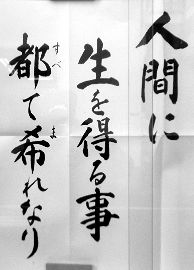 人間に
生を得る事
都て希れなり
すべ
ま